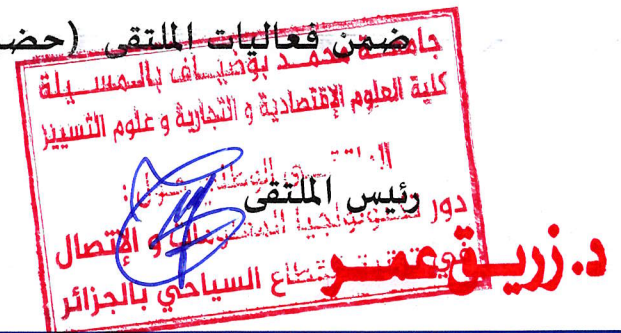 ضمن فعاليات الملتقى (حضـ
جامعة محمد بوضياف بالمسيلة
كلية العلوم الإقتصادية و التجارية و علوم التسيير
الملتقى الوطني حول :
رئيس الملتقى
دور تكنولوجيا المعلومات و الإتصال
في القطاع السياحي بالجزائر
د. زريق عمر